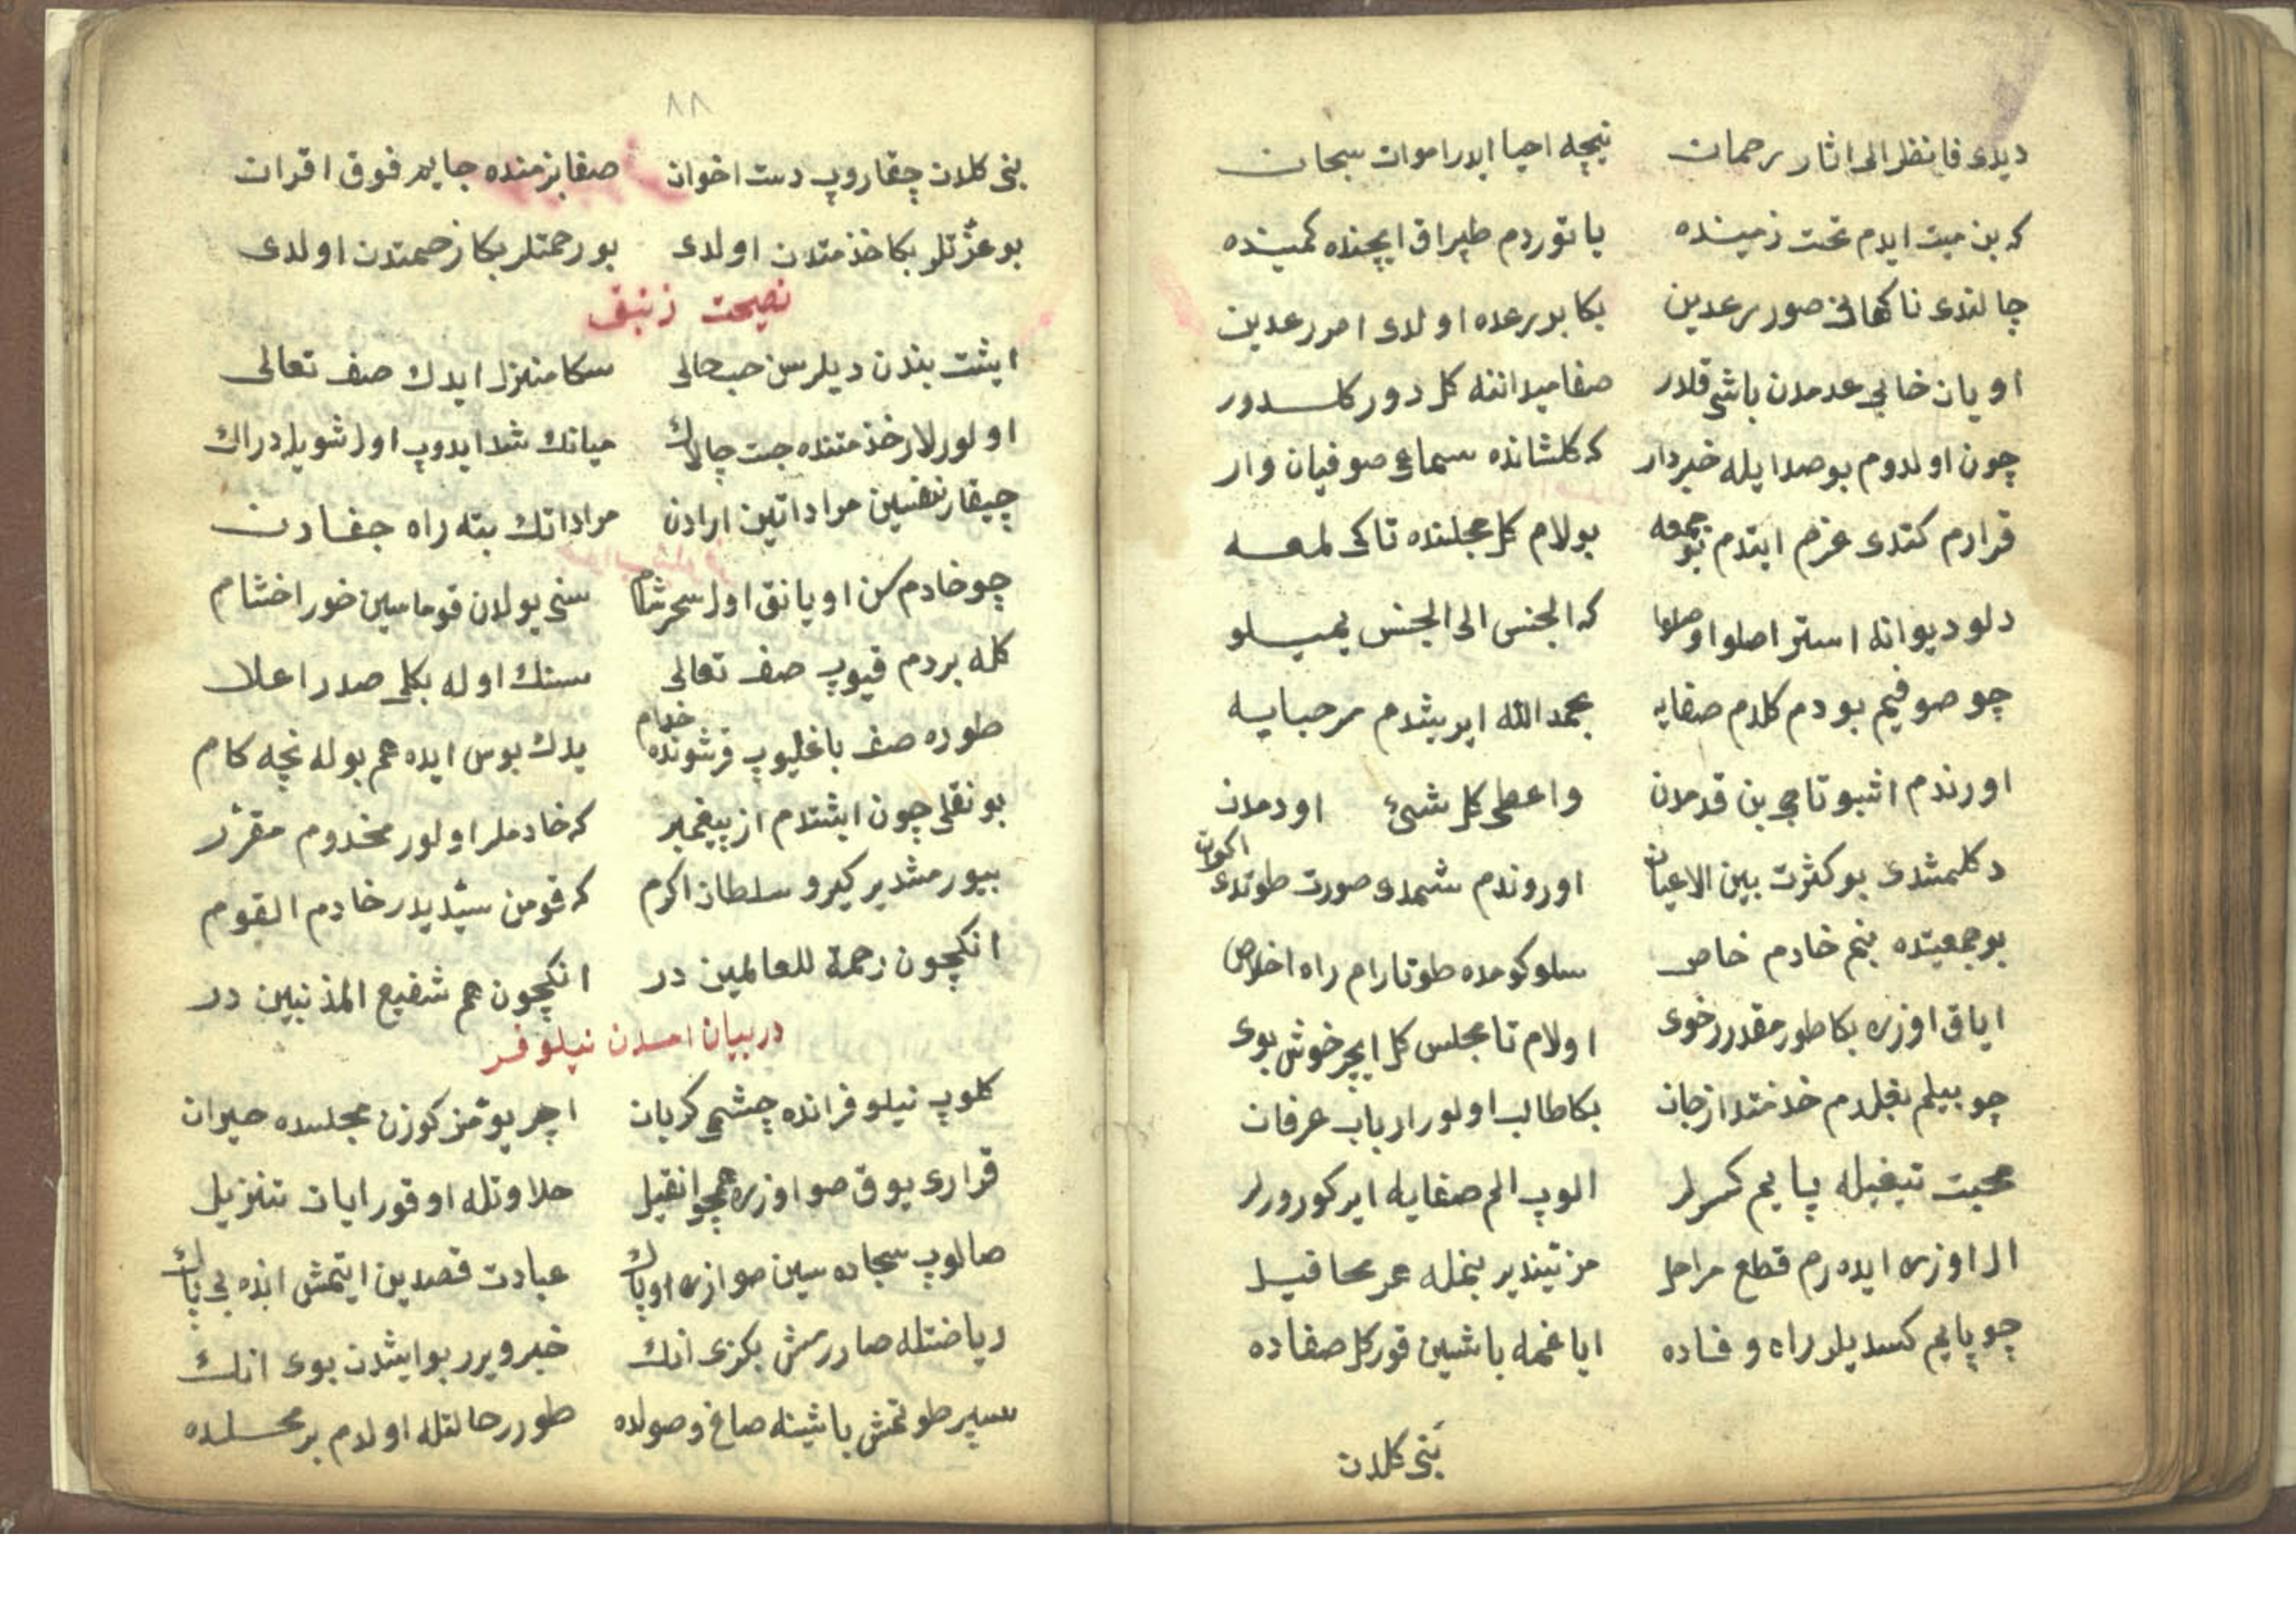 ديدى فانظر الى اثار رحمات نيچه احيا ايدر اموات سبحان
كه بن ميت ايدم تحت زمينده ياتوردم طپراق ايچنده كمينده
چالندى ناكهانى صور رعدين بكا بر رعده اولدى امر رعدين
اويان خابى عدمدن باشى قلدر صفا ميداننه كل دور كلدور
چون اولدوم بو صدا يله خبردار كه كلشانده سماعى صوفيان وار
قرارم كتدى عزم ايتدم بو جمعه بولام كل مجلسنده تا كى لمعه
دلو ديوانه استر اصلو اوصلو كه الجنس الى الجنس يميلو
چو صوفيم بو دم كلدم صفايه بحمد الله ايريشدم مرحبايه
اورندم اشبو تاجى بن قدمدن واعطى كل شئ اودمدن
دكلمشدى بو كثرت بين الاعيان اوروندم شمدى صورت طوتدى اكوان
بو جمعيتده بنم خادم خاص سلوكومده طوتارام راه اخلاص
اياق اوزره بكا طور مقدر خوى اولام تا مجلس كل ايچر خوش بوى
چو بيلم بغلدم خذمتده از جان بكا طالب اولور ارباب عرفان
محبت تيغيله پايم كسرلر الوب الم صفايه ايركورورلر
ال اوزره ايده رم قطع مراحل مزتيندير بنمله هر محافيل
چو پايم كسديلر راه وفاده اياغمه باشين قور كل صفاده
بنى كلدن
٨٨
بنى كلدن چقاروب دست اخوان صفا بزمنده جايم فوق اقران
بو عزتلر بكا خذمتدن اولدى بو رحمتلر بكا زحمتدن اولدى
نصيحت زنبق
ايشت بندن ديلرسن حسب حالى سكا منزل ايدك صف تعالى
اولورلار خذمتنده چست چالاك ميانك شد ايدوب اول شويله دراك
چيقار نفسين مراداتين ارادن مراداتك بته راه جفادن
چو خادم سن اويانق اول سحر شام سنى بولان قوماسين خور اخشام
كله بردم قيوب صف تعالى سنك اوله بكلى صدر اعلا
طوره صف باغليوب قرشونده خدام يدك بوس ايده هم بوله نچه كام
بو نقلى چون ايشتدم از پيغمبر كه خادملر اولور مخدوم مقرر
بيورمشدير كيرو سلطان اكرم كه قومن سيديدر خادم القوم
انكچون رحمة للعالمين در انكچون هم شفيع المذنبين در
در بيان امدن نيلوفر
كلوب نيلوفر انده چشمى كريان اچر يومز كوزن مجلسده حيران
قرارى يوق صو اوزره همچو انقيل حلاوتله اوقور ايات تنزيل
صالوب سجاده سين صو ازره اوپاك عبادت قصدين ايتمش انده بى باك
رياضتله صارارمش بكزى انك خبر ويرر بو ايشدن بوى انك
سپر طوتمش باشينه صاغ وصولده طورر حالتله اولدم بر محلده